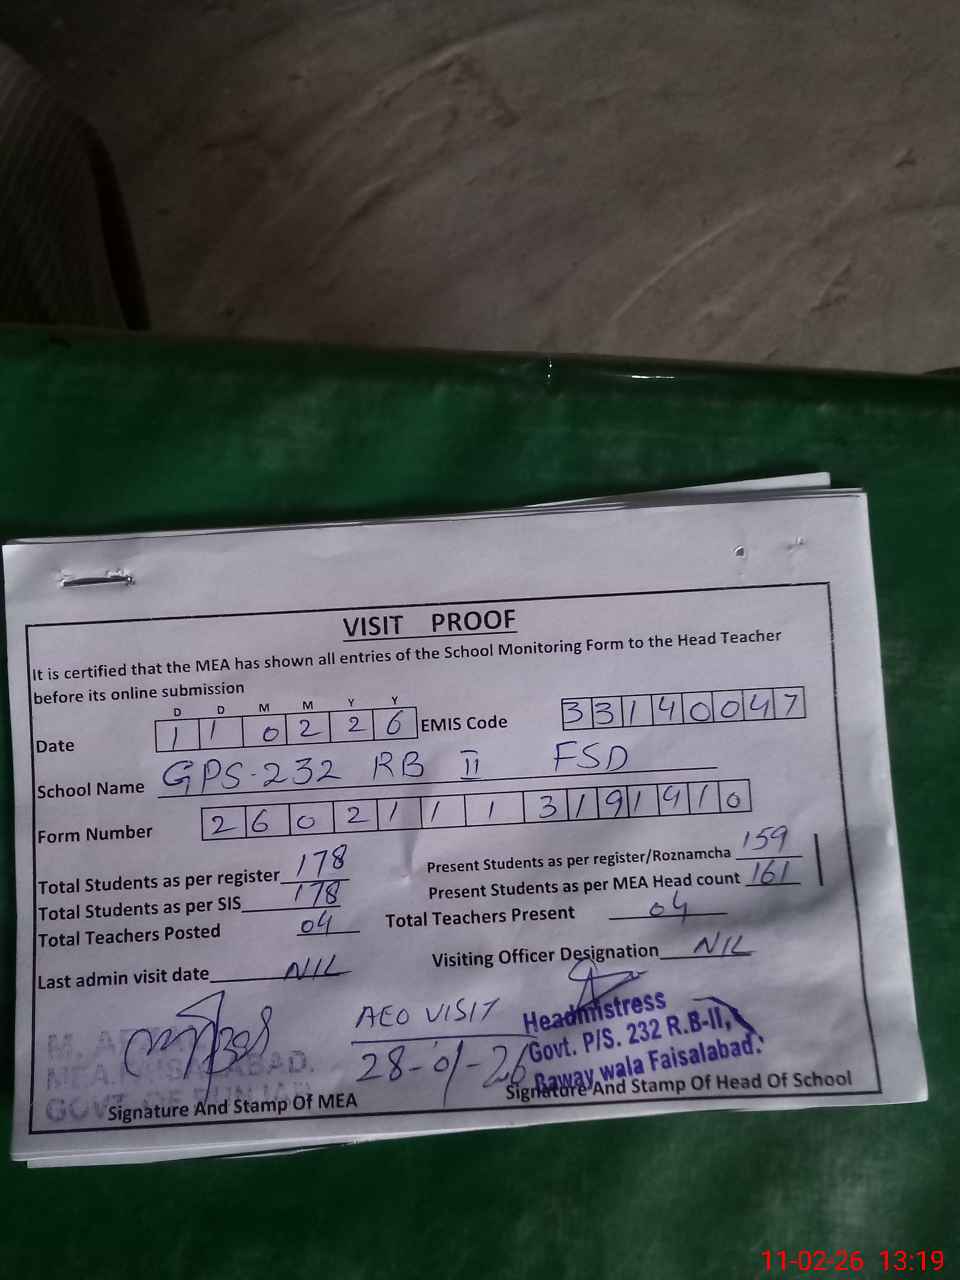 VISIT PROOF
It is certified that the MEA has shown all entries of the School Monitoring Form to the Head Teacher
before its online submission
D D M M Y Y
Date 11 02 26 EMIS Code 33140047
School Name GPS-232 RB II FSD
Form Number 26021113191410
Total Students as per register 178 Present Students as per register/Roznamcha 159
Total Students as per SIS 178 Present Students as per MEA Head count 161
Total Teachers Posted 04 Total Teachers Present 04
Last admin visit date NIL Visiting Officer Designation NIL
AEO VISIT
28-01-26
Headmistress
Govt. P/S. 232 R.B-II,
Baway wala Faisalabad.
Signature And Stamp Of MEA Signature And Stamp Of Head Of School
11-02-26 13:19